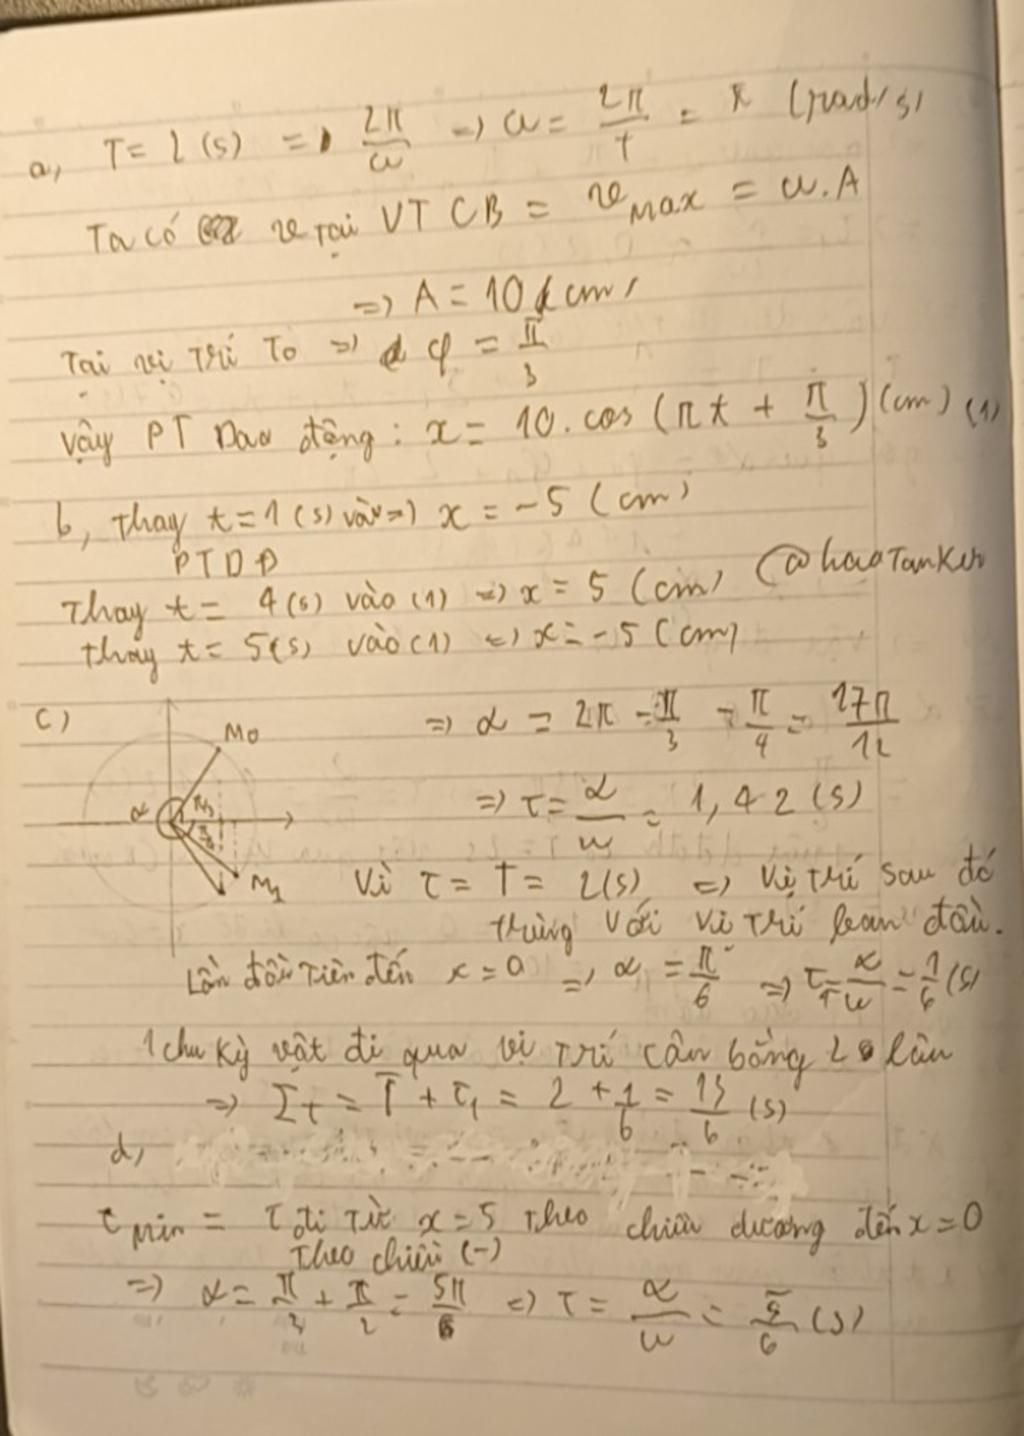 a, T = 2 (s) = 2π/ω => ω = 2π/T = π (rad/s)
Ta có v tại VTCB = vMax = ω.A
=> A = 10 (cm)
Tại vị trí To => φ = π/3
Vậy PT Dao động: x = 10.cos(πt + π/3) (cm) (1)
b, Thay t = 1 (s) vào => x = -5 (cm)
PTDĐ
Thay t = 4 (s) vào (1) => x = 5 (cm) @haoTanker
thay t = 5 (s) vào (1) => x = -5 (cm)
c) M0 => α = 2π - π/3 - π/4 = 17π/12
α π/3 => τ = α/ω = 1,42 (s)
M1 Vì τ = T = 2(s) => Vị trí sau đó
trùng với vị trí ban đầu.
Lần đầu tiên đến x = 0 => α = π/6 => τ1 = α/ω = 1/6 (s)
1 chu kỳ vật đi qua vị trí cân bằng 2 lần
=> Στ = T + τ1 = 2 + 1/6 = 13/6 (s)
d,
τMin = τ đi từ x = 5 theo chiều dương đến x = 0
theo chiều (-)
=> α = π/3 + π/2 = 5π/6 => τ = α/ω = 5/6 (s)